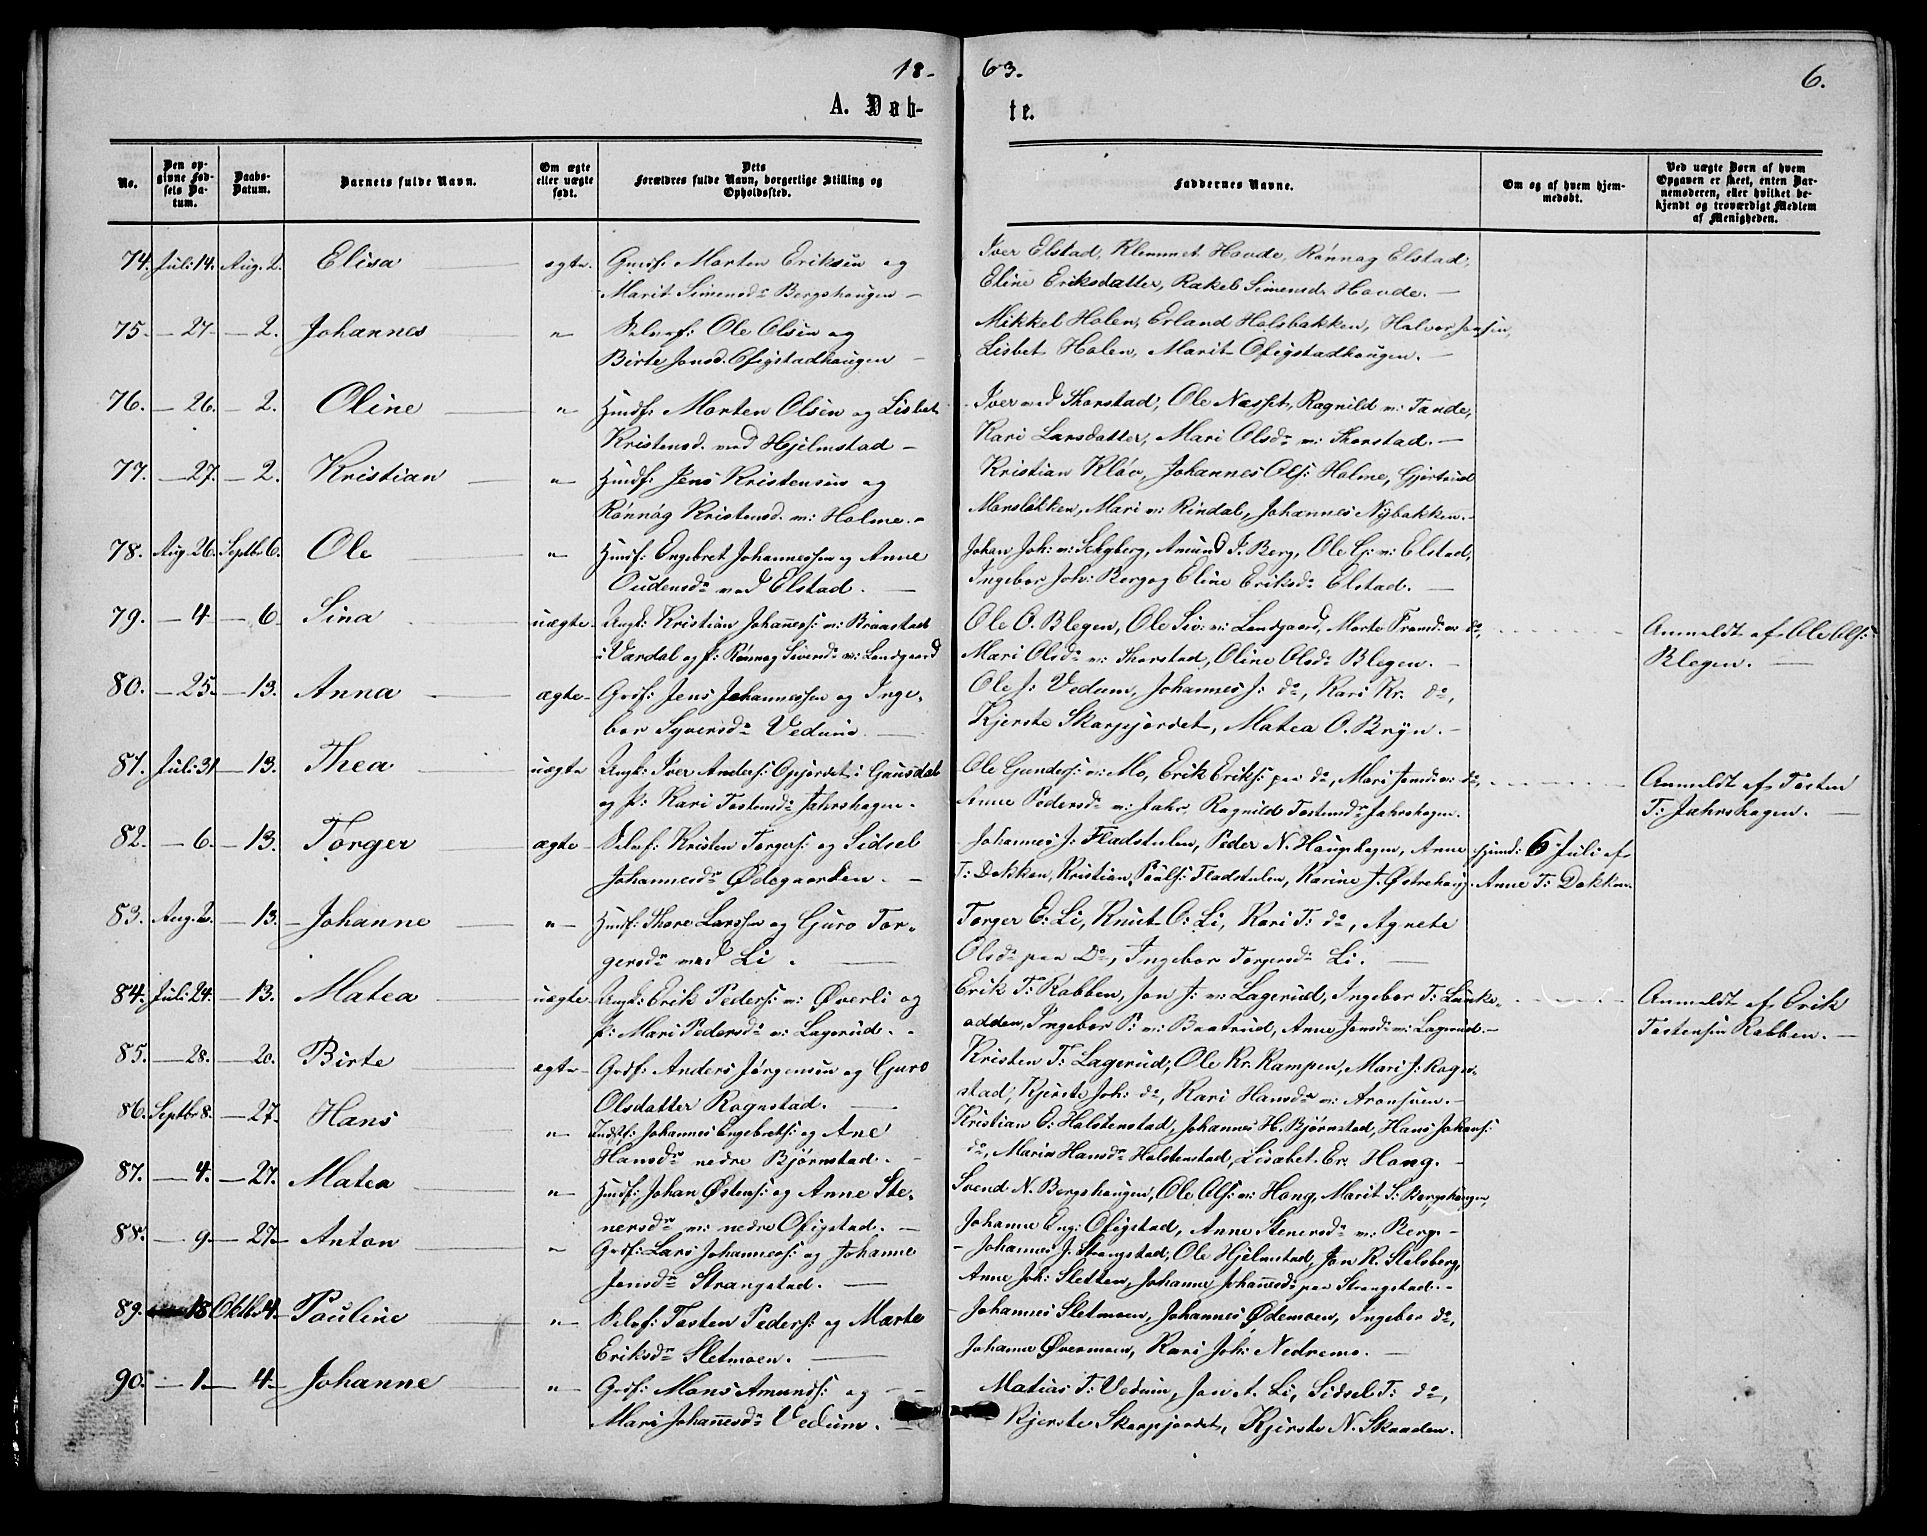 18-
63.
6.
A. Døb-
te.
No.
Den op-
givne Fød-
sels Da-
tum.
Daabs-
Datum.
Barnets fulde Navn.
Om ægte
eller uægte
født.
Dets
Forældres fulde Navn, borgerlige Stilling og
Opholdssted.
Faddernes Navne.
Om og af hvem hjem-
medøbt.
Ved uægte Børn af hvem
Opgaven er skeet, enten Bar-
nemoderen, eller hvilket be-
kjendt og troværdigt Medlem
af Menigheden.
74. Juli 14. Aug. 2. Elisa ægte. Gmdf: Morten Eriksen og
Marit Simensdr Bergshaugen
Iver Elstad, Klemmet Hovde, Rønnog Elstad,
Eline Eriksdatter, Rakel Simensd. Hovde.
75. 27 2. Johannes " Selvf: Ole Olsen og
Birte Jonsd. Ofigstadhaugen
Mikkel Holen, Erland Holsbakken, Halvor Jonsen,
Lisbet Holen, Marit Ofigstadhaugen.
76. 26. 2. Oline " Husf: Morten Olsen og Lisbet
Kristensd. ved Hjelmstad
Iver ved Skorstad, Ole Næsset, Ragnild v: Tande,
Kari Larsdatter, Mari Olsdr v: Skorstad.
77. 27. 2. Kristian " Husf: Jens Kristensen og
Rønnog Kristensd. v: Holme.
Kristian Kløv, Johannes Ols: Holme, Gjertrud
Monsløkken, Mari v: Rindal, Johannes Nybakken.
78. Aug. 26. Septbr 6. Ole " Husf: Engebret Johannessen og Anne
Oudensdr ved Elstad.
Johan Joh: v: Selyberg, Amund J. Berg, Ole G: v: Elstad,
Ingebor Joh: Berg og Eline Eriksdr Elstad.
79. 4 6. Sina uægte Ungk: Kristian Johaness: v: Braastad
i Vardal og P: Rønnog Siversdr v: Landgaard
Ole O. Blegen, Ole Siv: v: Landgaard, Marte Framd: v: do,
Mari Olsdr v: Skorstad, Oline Olsdr Blegen.
Anmeldt af Ole Ols:
Blegen.
80. 25. 13. Anna ægte Grdf: Jens Johannessen og Inge-
bor Syversdr Vedum
Ole J: Vedum, Johannes J: do, Kari Kr. do,
Kjerste Skarpjordet, Matea O. Bryn.
81. Juli 31 13. Thea uægte Ungk: Iver Anders: Opjordet i Gausdal
og P: Kari Tostensdr Jahrshagen.
Ole Gunders: v: Mo, Erik Eriks: paa do, Mari Jonsd: v: do,
Anne Pedersdr v: Jahr, Ragnild Tostensdr Jahrshagen.
Anmeldt af Tosten
T: Jahrshagen.
82. 6. 13. Torger ægte Selvf: Kristen Torgers: og Sidsel
Johannesdr Ødegaarden.
Johannes J: Fladstulen, Peder N. Haugshagen, Anne
T: Dokken, Kristian Pauls: Fladstulen, Karine J. Østrehaug.
hjemd: 6 Juli af
Anne T: Dokken.
83. Aug. 2. 13. Johanne " Husf: Thore Larssen og Guro Tor-
gersdr ved Li.
Torger E: Li, Knut O: Li, Kari T: do, Agnete
Olsdr paa Do, Ingebor Torgersdr Li.
84. Juli 24. 13. Matea uægte Ungk: Erik Peders: v: Øverli og
P: Mari Pedersdr v: Lagerud.
Erik T: Rabben, Jon J: v: Lagerud, Ingebor T: Lunke-
odden, Ingebor P: v: Baatrud, Anne Jonsdr v: Lagerud.
Anmeldt af Erik
Tostensen Rabben.
85. 28. 20. Birte ægte Grdf: Anders Jørgensen og Guro
Olsdatter Rognstad.
Kristen T: Lagerud, Ole Kr. Kampen, Mari J: Rogn-
stad, Kjerste Joh: do, Kari Hansdr v: Aronsveen.
86. Septbr 8. 27. Hans " Indstf: Johannes Engebrets: og Ane
Hansdr nedre Bjørnstad.
Kristian O: Holstenstad, Johannes H. Bjørnstad, Hans Johans:
do, Marin Hansdr Holstenstad, Lisabet Er. Hong.
87. 4. 27. Matea " Husf: Johan Østens: og Anne Ste-
nersdr v: nedre Ofigstad.
Svend N. Bergshaugen, Ole Ols: v: Hong, Marit S: Bergshaugen,
Johanne Eng: Ofigstad, Anne Stenersdr v: Berg.
88. 9 27. Anton " Grdf: Lars Johanness: og Johanne
Jensdr Strangstad.
Johannes J. Strangstad, Ole Hjelmstad, Jon R. Stalsberg,
Anne Joh: Sletten, Johanne Johanesdr paa Strangstad.
89. 18 Oktbr 4. Pauline " Selvf: Tosten Peders: og Marte
Eriksdr Sletmoen.
Johannes Sletmoen, Johannes Ødemoen, Ingebor do,
Johanne Øvermoen, Kari Joh: Nedremo.
90. 1. 4. Johanne " Grdf: Mons Amunds: og
Mari Johanesdr Vedum.
Matias T: Vedum, Jon A. Li, Sidsel T: do,
Kjerste Skarpjordet, Kjerste N. Skaaden.